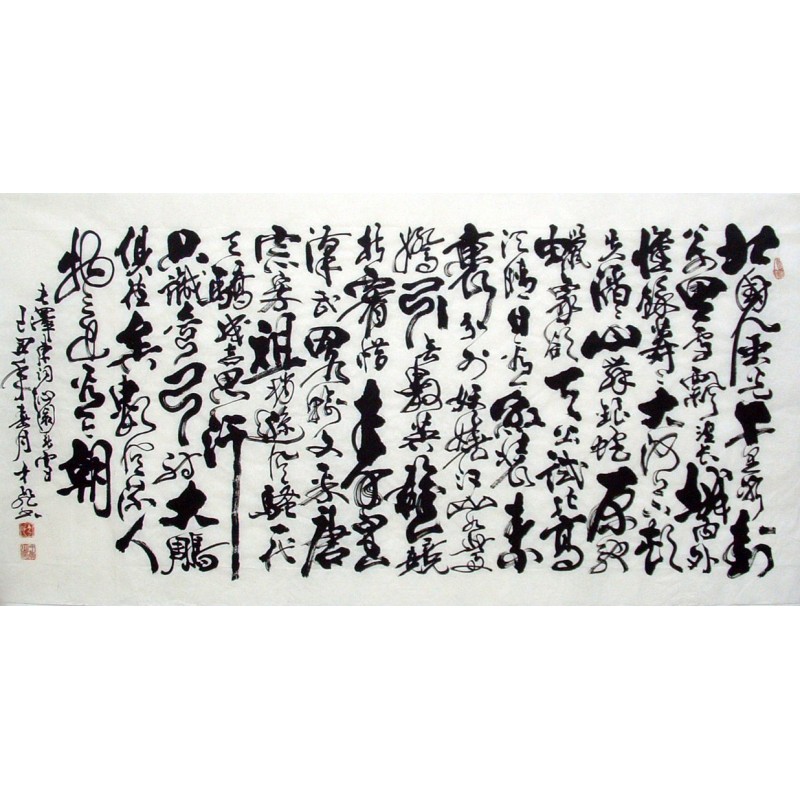 北國风光千里冰封
万里雪飘望长城内外
惟餘莽莽大河上下頓
失滔滔山舞银蛇原馳
蠟象欲与天公試比高
须晴日看红装素
裹分外妖娆江山如此多
嬌引无數英雄競
折腰惜秦皇
漢武略输文采唐
宗宋祖稍遜风騷一代
天驕成吉思汗
只識弯弓射大鵰
俱往矣數风流人
物还看今朝
毛澤东詞沁園春雪
己丑年春月